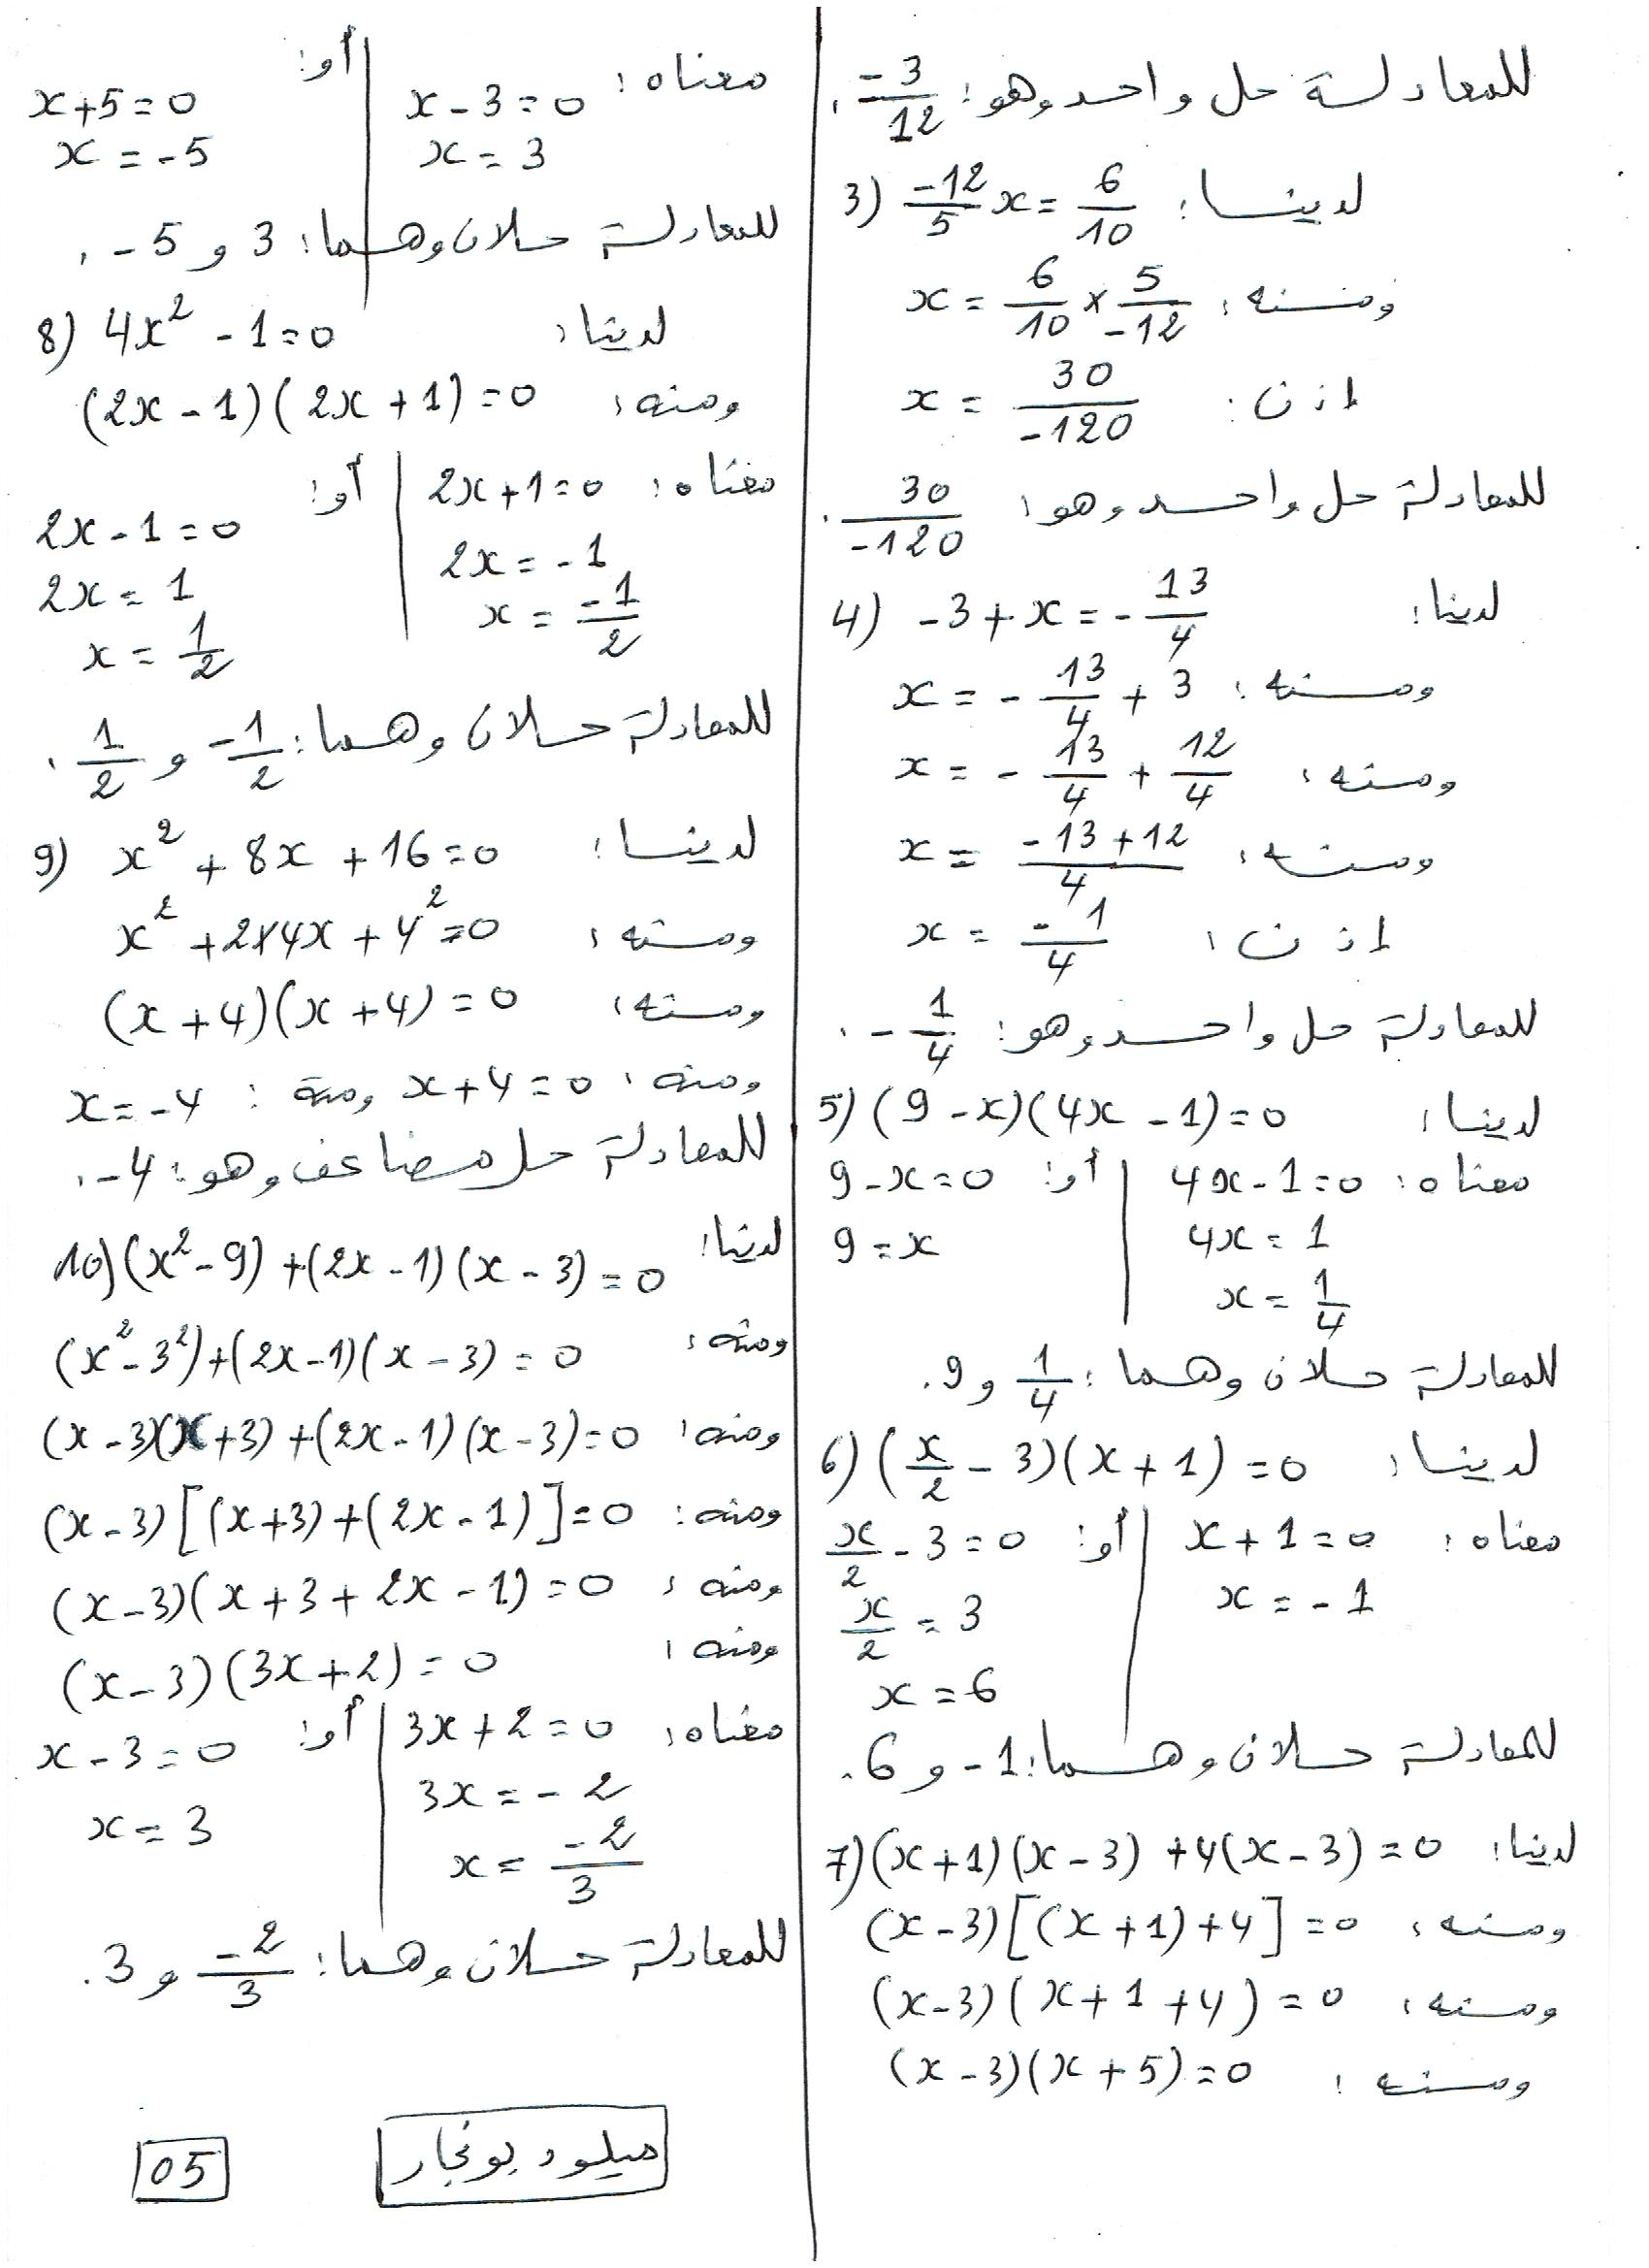 للمعادلة حل واحد وهو: -3/12.
3) -12/5 x = 6/10 لدينا:
x = 6/10 × 5/-12 ومنه:
x = 30/-120 إذن:
للمعادلة حل واحد وهو: 30/-120.
4) -3 + x = -13/4 لدينا:
x = -13/4 + 3 ومنه:
x = -13/4 + 12/4 ومنه:
x = (-13+12)/4 ومنه:
x = -1/4 إذن:
للمعادلة حل واحد وهو: -1/4.
5) (9 - x)(4x - 1) = 0 لدينا:
معناه: 4x - 1 = 0 | أو: 9 - x = 0
4x = 1 | 9 = x
x = 1/4
للمعادلة حلان وهما: 1/4 و 9.
6) (x/2 - 3)(x + 1) = 0 لدينا:
معناه: x + 1 = 0 | أو: x/2 - 3 = 0
x = -1 | x/2 = 3
x = 6
للمعادلة حلان وهما: -1 و 6.
7) (x+1)(x-3) + 4(x-3) = 0 لدينا:
(x-3)[(x+1)+4] = 0 ومنه:
(x-3)(x+1+4) = 0 ومنه:
(x-3)(x+5) = 0 ومنه:
معناه: x - 3 = 0 | أو: x + 5 = 0
x = 3 | x = -5
للمعادلة حلان وهما: 3 و -5.
8) 4x² - 1 = 0 لدينا:
(2x - 1)(2x + 1) = 0 ومنه:
معناه: 2x + 1 = 0 | أو: 2x - 1 = 0
2x = -1 | 2x = 1
x = -1/2 | x = 1/2
للمعادلة حلان وهما: -1/2 و 1/2.
9) x² + 8x + 16 = 0 لدينا:
x² + 2×4x + 4² = 0 ومنه:
(x + 4)(x + 4) = 0 ومنه:
ومنه: x + 4 = 0 ومنه: x = -4
للمعادلة حل مضاعف وهو: -4.
10) (x² - 9) + (2x - 1)(x - 3) = 0 لدينا:
(x² - 3²) + (2x - 1)(x - 3) = 0 ومنه:
(x - 3)(x + 3) + (2x - 1)(x - 3) = 0 ومنه:
(x - 3)[(x + 3) + (2x - 1)] = 0 ومنه:
(x - 3)(x + 3 + 2x - 1) = 0 ومنه:
(x - 3)(3x + 2) = 0 ومنه:
معناه: 3x + 2 = 0 | أو: x - 3 = 0
3x = -2 | x = 3
x = -2/3
للمعادلة حلان وهما: -2/3 و 3.
ميلود بونجار
05